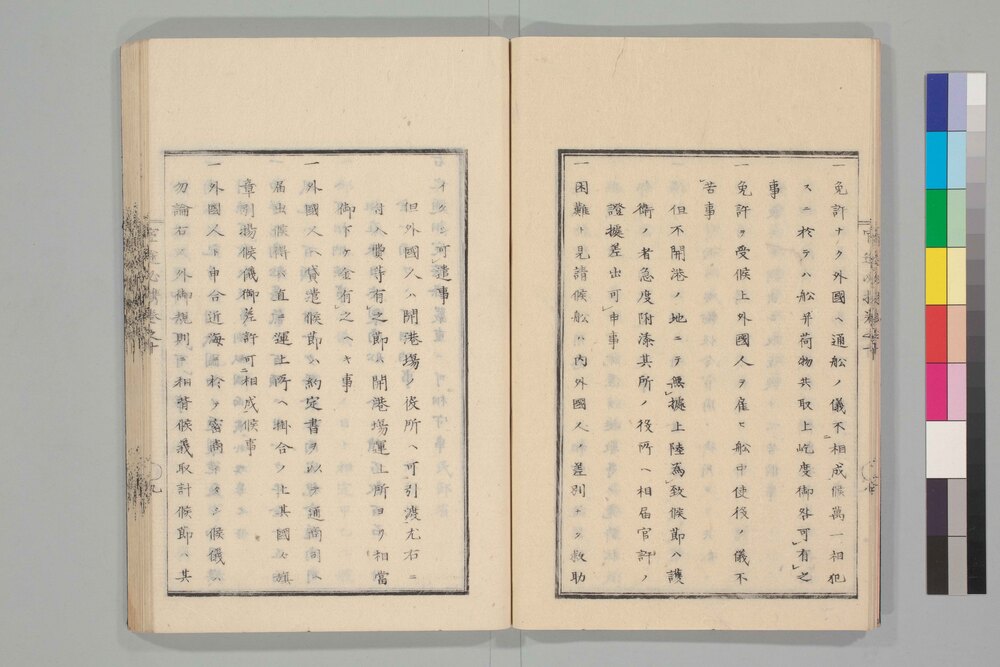 一免許ナク外國ヘ通船ノ儀不相成候萬一相犯
スニ於テハ船并荷物共取上屹度御咎可有之
事
一免許ヲ受候上外國人ヲ雇ヒ船中使役ノ儀不
苦事
但不開港ノ地ニテ無據上陸為致候節ハ護
衛ノ者急度附添其所ノ役所ヘ相届官許ノ
證據差出可申事
一困難ト見請候船ハ内外國人ノ差別ナク救助
イタシ可遣事
但外國人ハ開港場ノ役所ヘ可引渡尤右ニ
付入費等有之節ハ開港場運上所ヨリ相當
御下ケ金有之ヘキ事
一外國人ヘ貸遣候節ハ約定書ヲ以テ通商司ヘ
届出候得ハ直ニ運上所ヘ掛合ノ上其國々旗
章引揚候儀御差許可相成候事
一外國人ト申合近海ニ於テ密商イタシ候儀ハ
勿論右ノ外御規則ニ相背候義取計候節ハ其